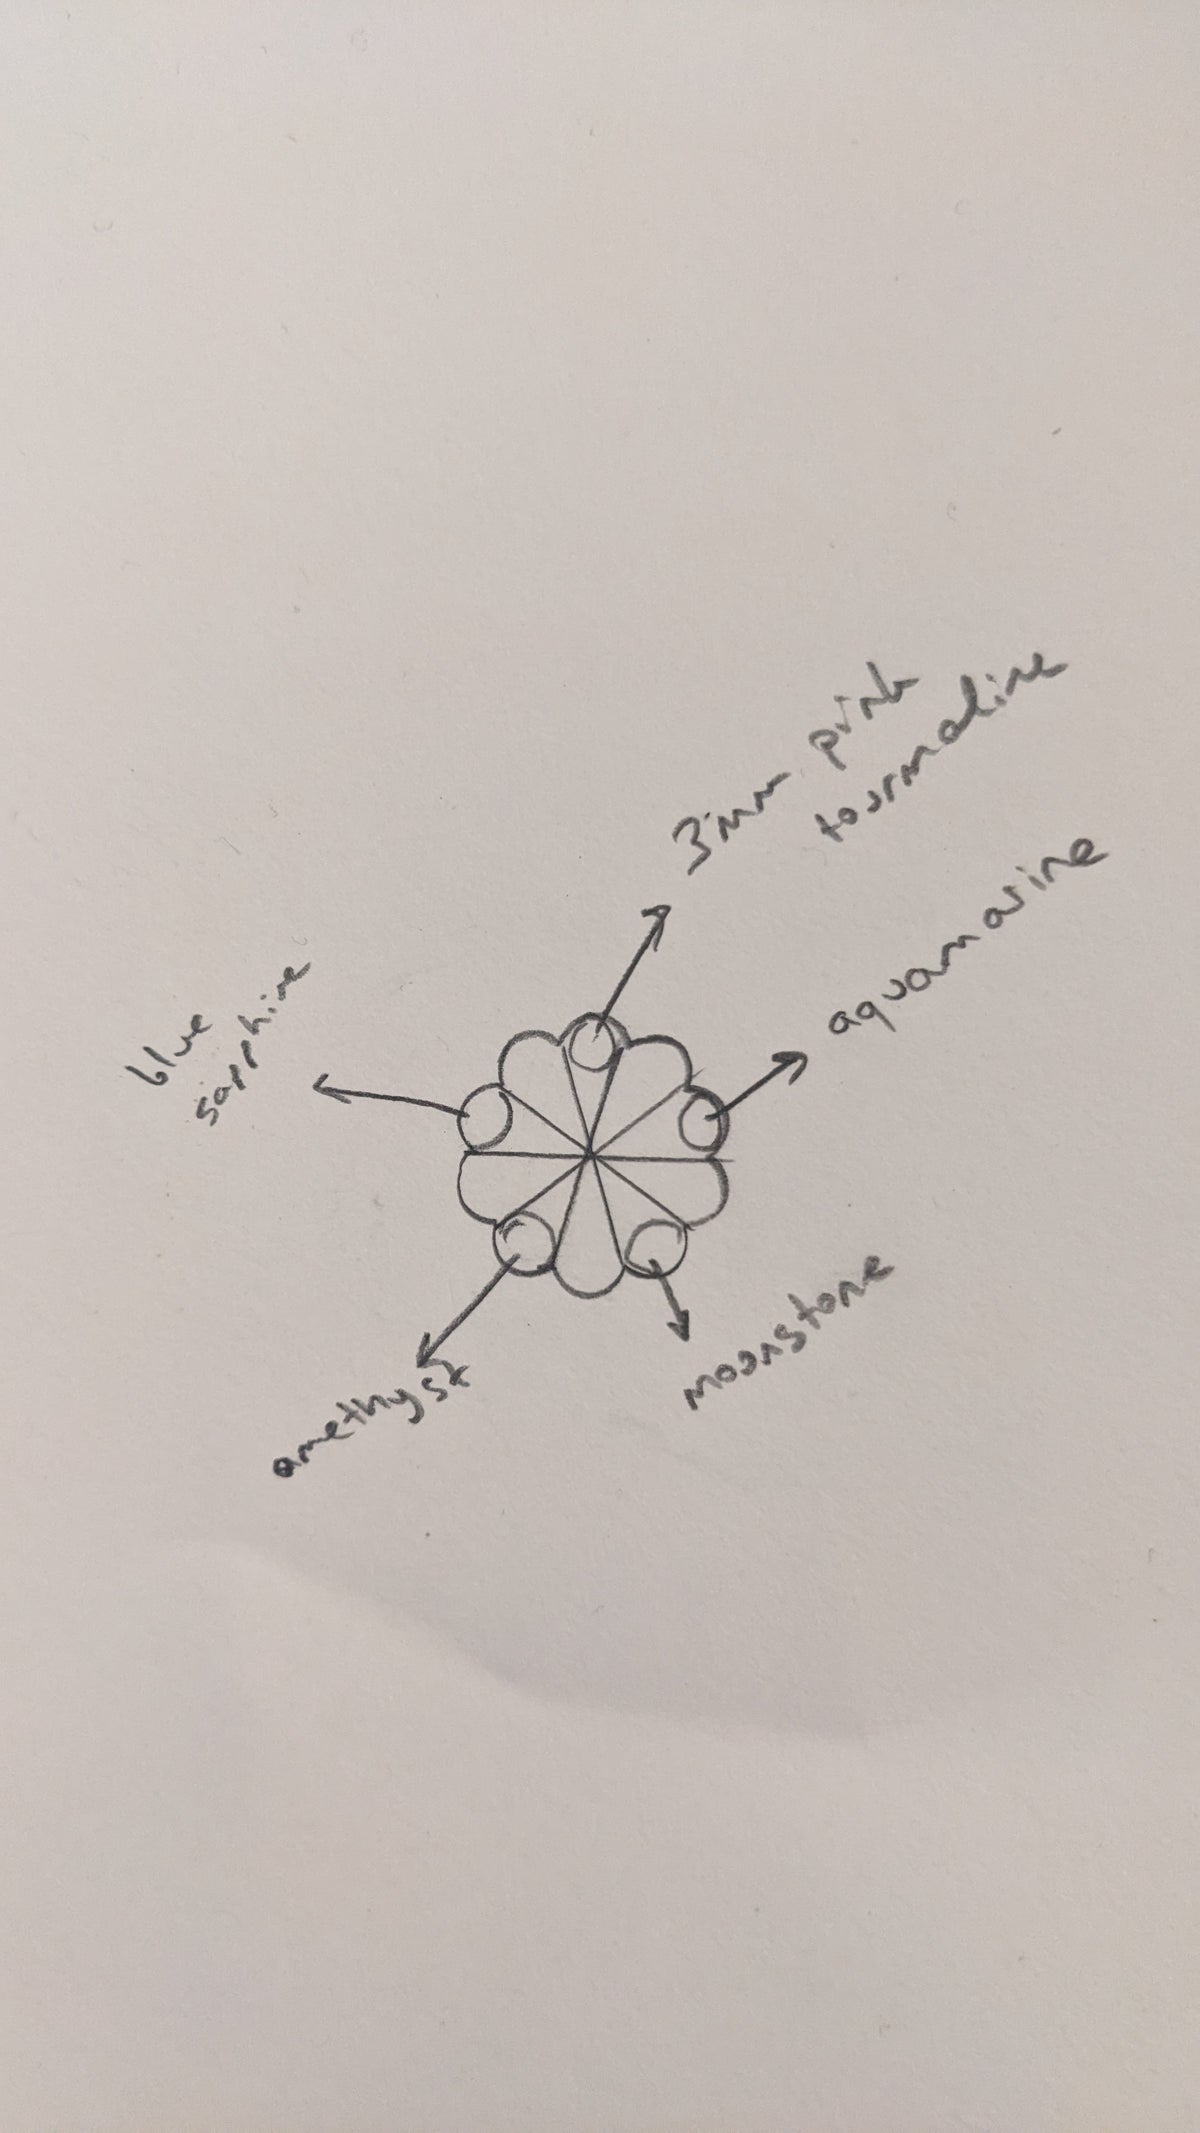 3mm pink
tourmaline
aquamarine
blue
sapphire
moonstone
amethyst